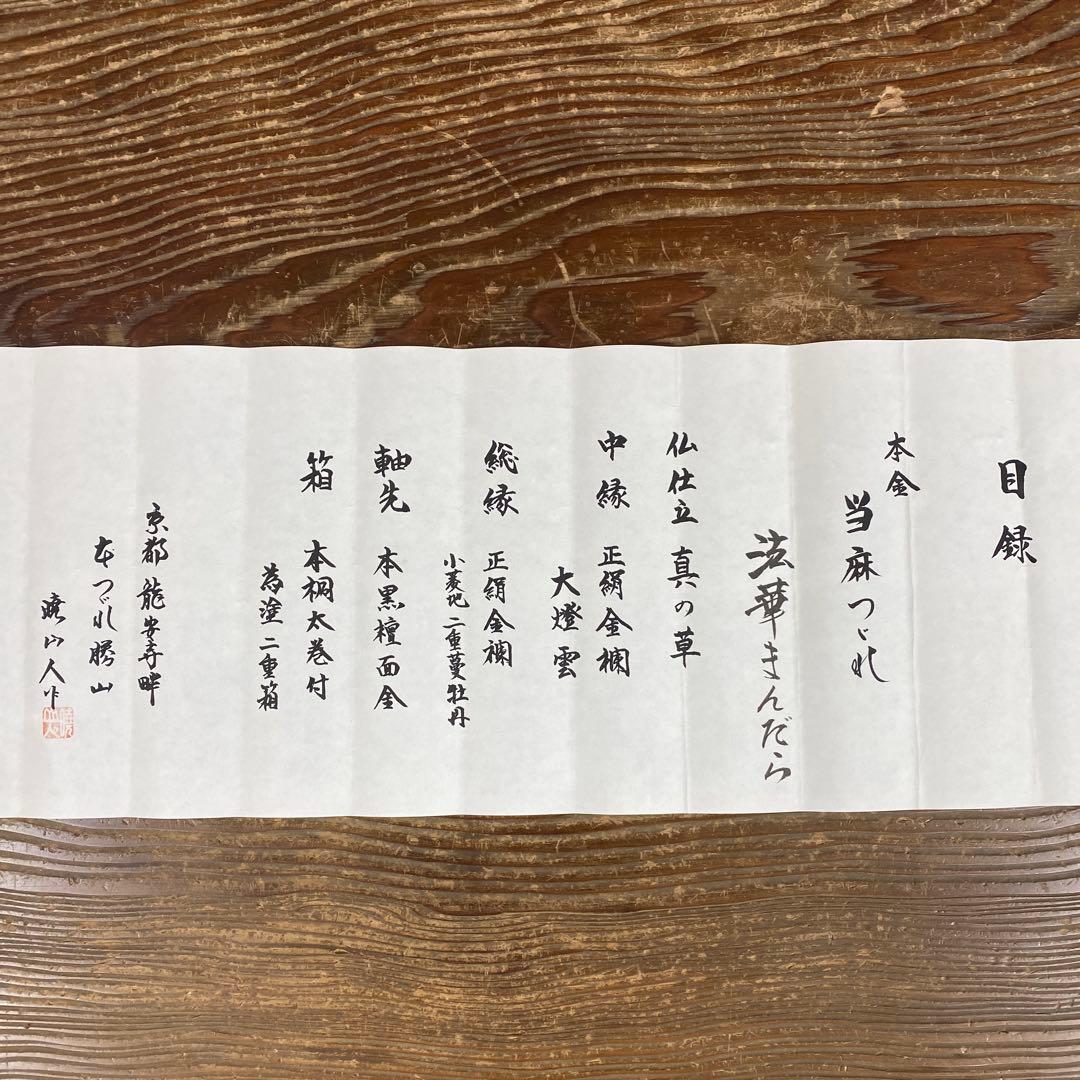 目録
本金
当麻つづれ
法華まんだら
仏仕立 真の草
中縁 正絹金襴
大燈雲
総縁 正絹金襴
小菱地二重蔓牡丹
軸先 本黒檀面金
箱 本桐太巻付
為塗二重箱
京都龍安寺畔
本つづれ勝山
人作